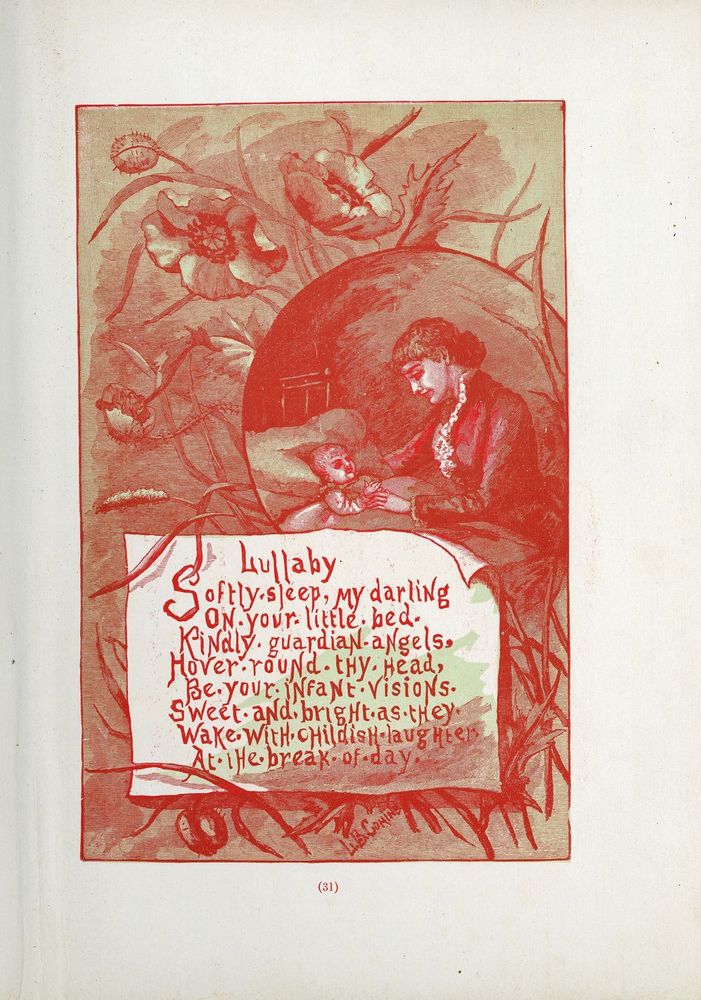 Lullaby
Softly·sleep, my darling
On·your·little·bed·
Kindly·guardian·angels,
Hover·round·thy·head,
Be·your·infant·visions·
Sweet·and·bright·as·they·
Wake·with·childish·laughter
At·the·break·of·day.
L.B.
(31)